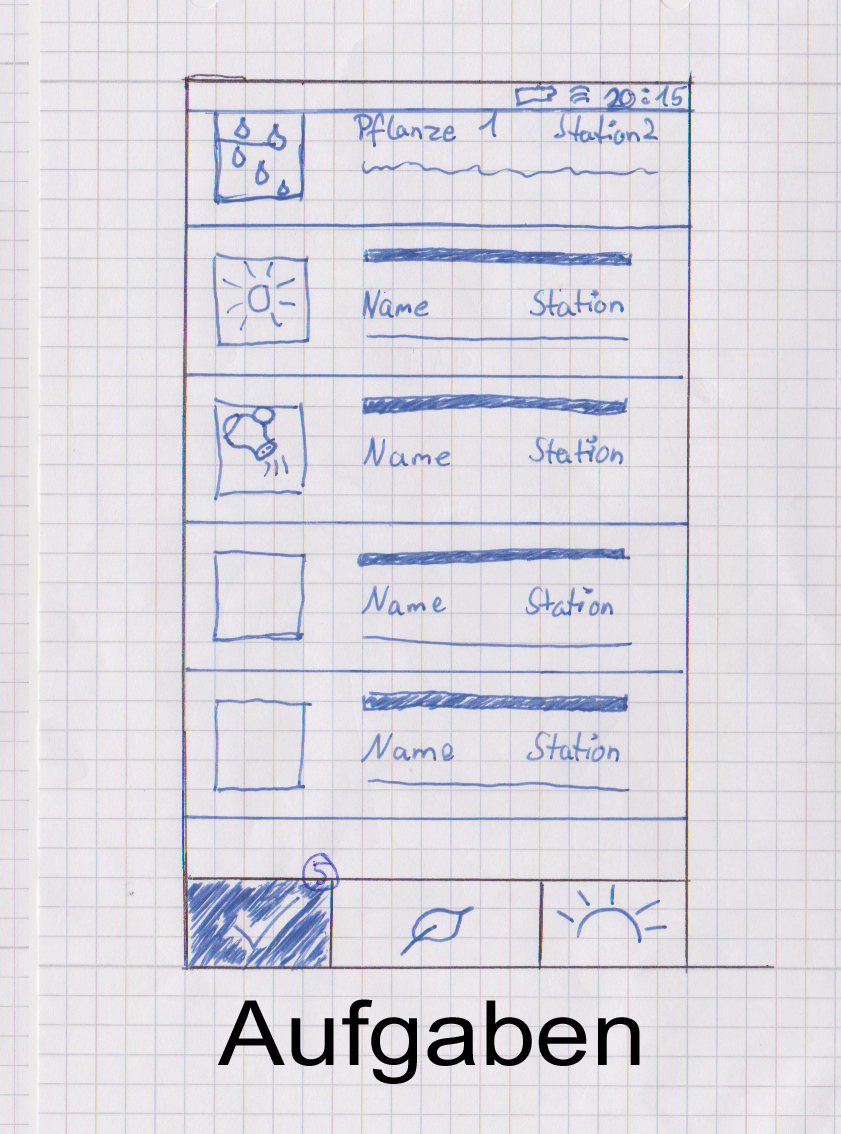 20:15
Pflanze 1 Station2
Name Station
Name Station
Name Station
Name Station
5
Aufgaben